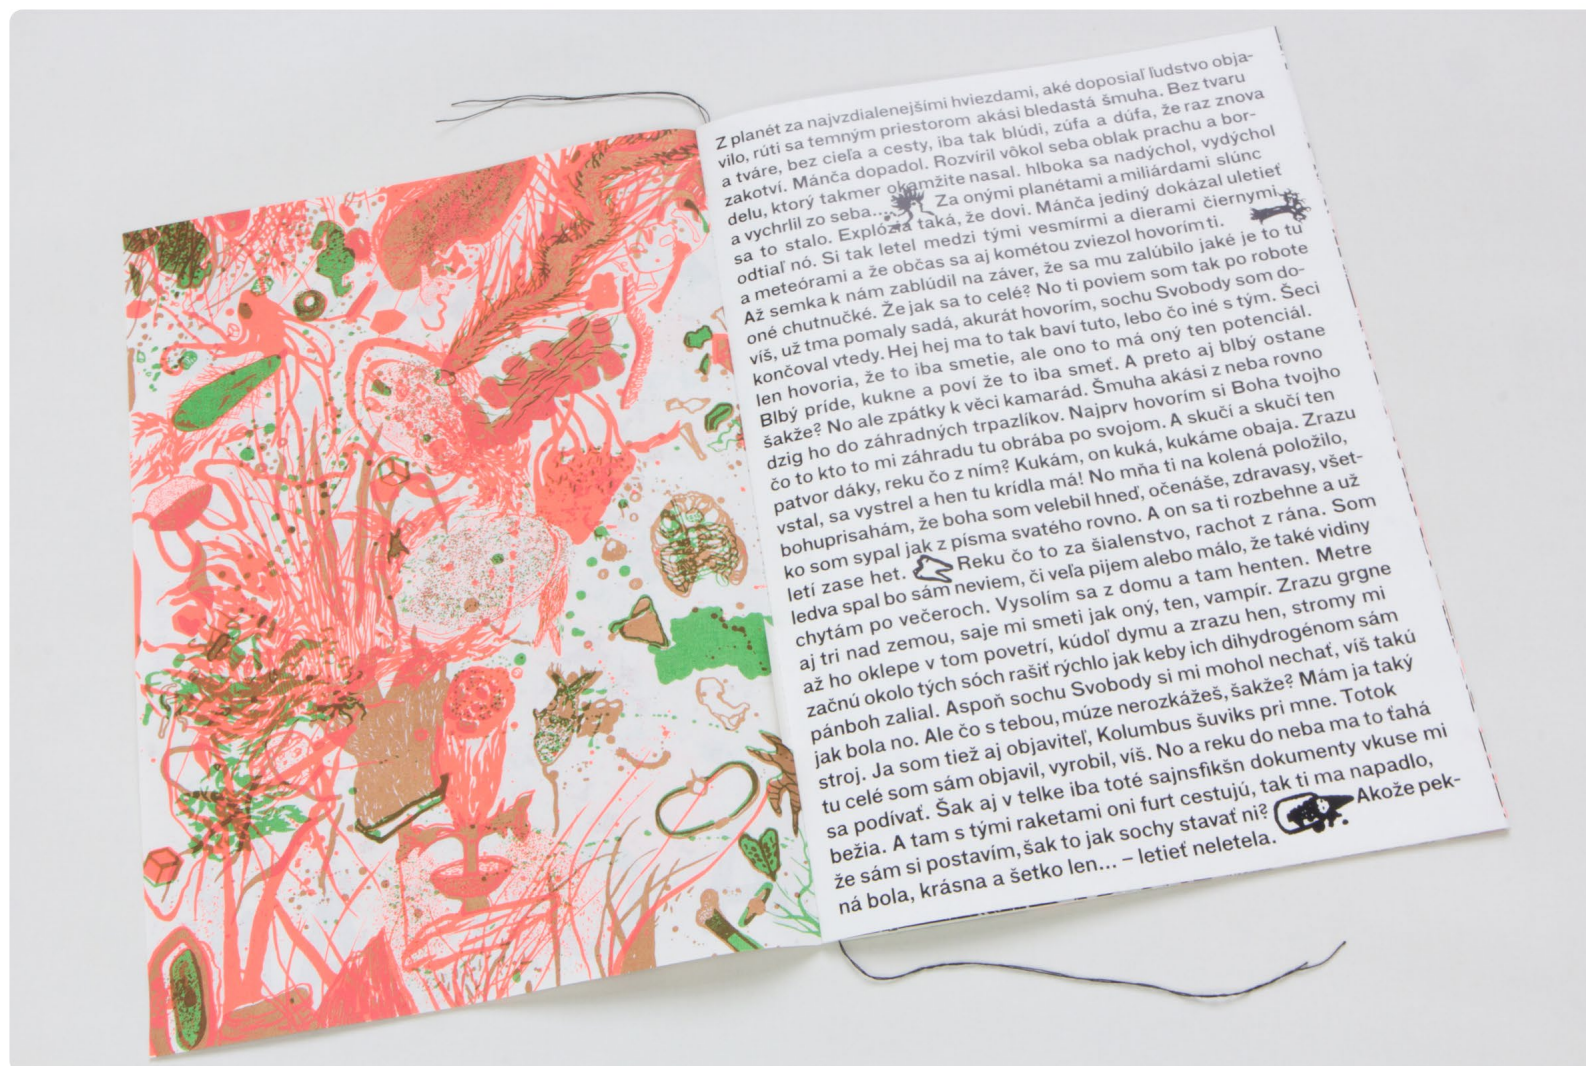 Z planét za najvzdialenejšími hviezdami, aké doposiaľ ľudstvo obja-
vilo, rúti sa temným priestorom akási bledastá šmuha. Bez tvaru
a tváre, bez cieľa a cesty, iba tak blúdi, zúfa a dúfa, že raz znova
zakotví. Mánča dopadol. Rozvíril vôkol seba oblak prachu a bor-
delu, ktorý takmer okamžite nasal. hlboka sa nadýchol, vydýchol
a vychrlil zo seba... Za onými planétami a miliárdami slúnc
sa to stalo. Explózia taká, že dovi. Mánča jediný dokázal uletieť
odtiaľ nó. Si tak letel medzi tými vesmírmi a dierami čiernymi
a meteórami a že občas sa aj kométou zviezol hovorím ti.
Až semka k nám zablúdil na záver, že sa mu zalúbilo jaké je to tu
oné chutnučké. Že jak sa to celé? No ti poviem som tak po robote
víš, už tma pomaly sadá, akurát hovorím, sochu Svobody som do-
končoval vtedy. Hej hej ma to tak baví tuto, lebo čo iné s tým. Šeci
len hovoria, že to iba smetie, ale ono to má oný ten potenciál.
Blbý príde, kukne a poví že to iba smeť. A preto aj blbý ostane
šakže? No ale zpátky k věci kamarád. Šmuha akási z neba rovno
dzig ho do záhradných trpazlíkov. Najprv hovorím si Boha tvojho
čo to kto to mi záhradu tu obrába po svojom. A skučí a skučí ten
patvor dáky, reku čo z ním? Kukám, on kuká, kukáme obaja. Zrazu
vstal, sa vystrel a hen tu krídla má! No mňa ti na kolená položilo,
bohuprisahám, že boha som velebil hneď, očenáše, zdravasy, všet-
ko som sypal jak z písma svatého rovno. A on sa ti rozbehne a už
letí zase het. Reku čo to za šialenstvo, rachot z rána. Som
ledva spal bo sám neviem, či veľa pijem alebo málo, že také vidiny
chytám po večeroch. Vysolím sa z domu a tam henten. Metre
aj tri nad zemou, saje mi smeti jak oný, ten, vampír. Zrazu grgne
až ho oklepe v tom povetrí, kúdoľ dymu a zrazu hen, stromy mi
začnú okolo tých sóch rašiť rýchlo jak keby ich dihydrogénom sám
pánboh zalial. Aspoň sochu Svobody si mi mohol nechať, víš takú
jak bola no. Ale čo s tebou, múze nerozkážeš, šakže? Mám ja taký
stroj. Ja som tiež aj objaviteľ, Kolumbus šuviks pri mne. Totok
tu celé som sám objavil, vyrobil, víš. No a reku do neba ma to ťahá
sa podívať. Šak aj v telke iba toté sajnsfikšn dokumenty vkuse mi
bežia. A tam s tými raketami oni furt cestujú, tak ti ma napadlo,
že sám si postavím, šak to jak sochy stavať ni? Akože pek-
ná bola, krásna a šetko len... – letieť neletela.